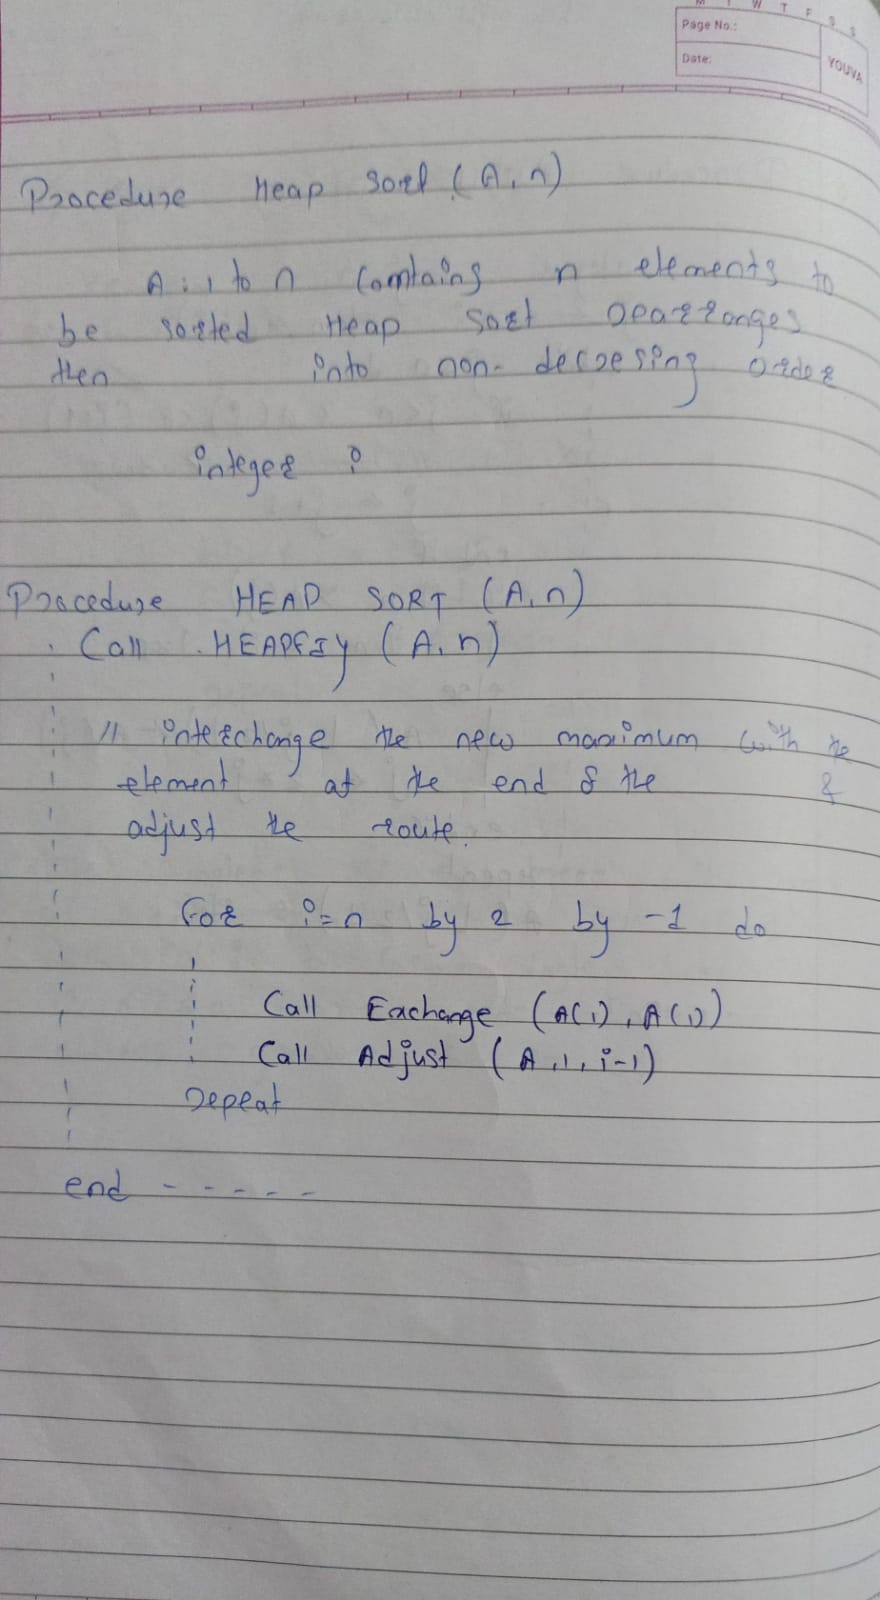 M T W T F S S
Page No.:
Date:
YOUVA
Procedure Heap Sort (A, n)
A : 1 to n Contains n elements to
be sorted Heap Sort rearranges
then into non-decresing order
integer i
Procedure HEAP SORT (A, n)
Call HEAPFIY (A, n)
// interchange the new maximum with the
element at the end of the &
adjust the route.
For i=n by 2 by -1 do
Call Exchange (A(1), A(1))
Call Adjust (A, 1, i-1)
repeat
end - - - - -